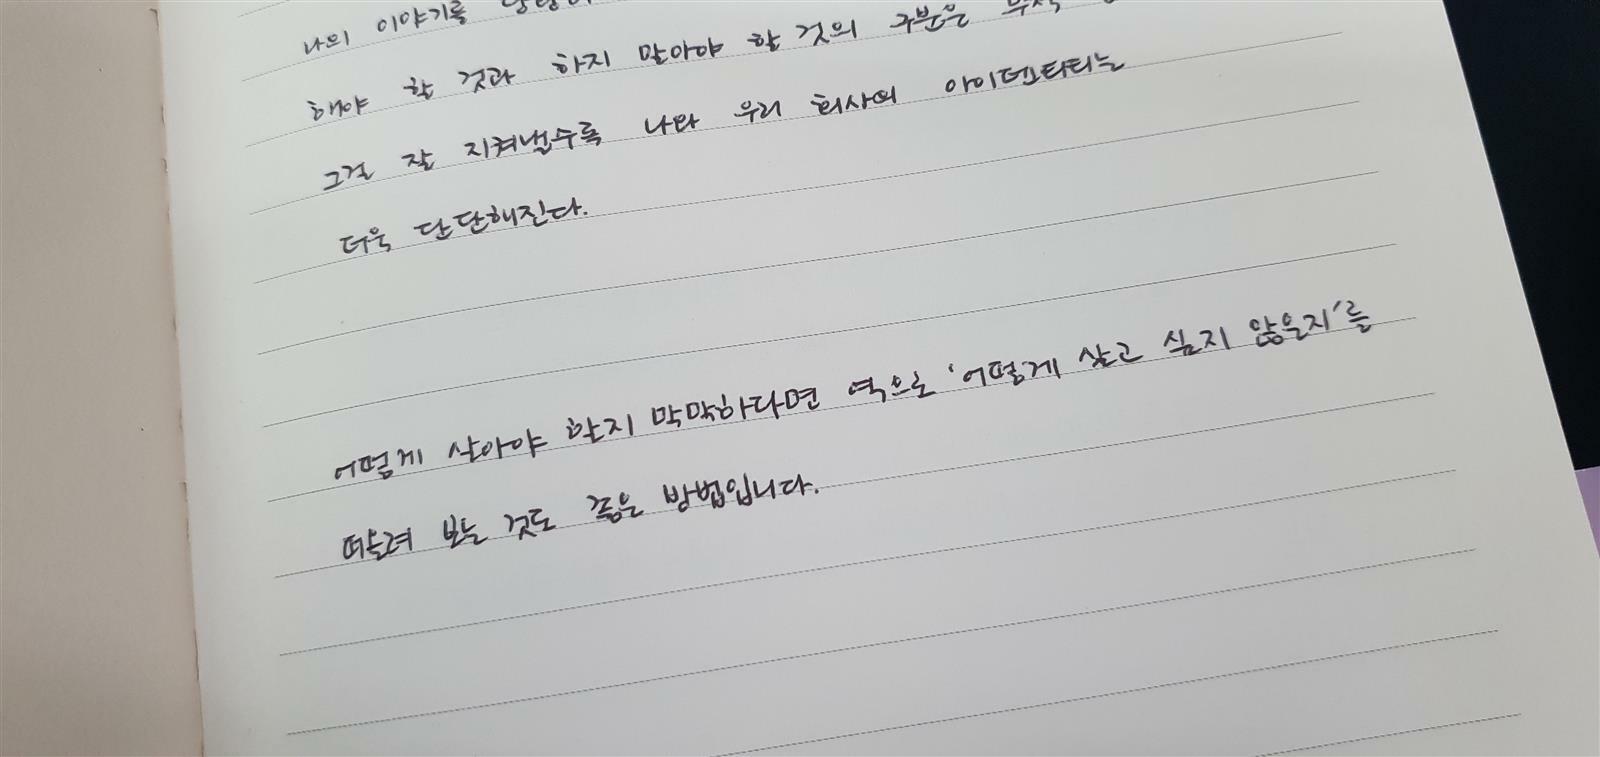 나의 이야기를
해야 할 것과 하지 말아야 할 것의 구분은
그걸 잘 지켜낼수록 나와 우리 회사의 아이덴티티는
더욱 단단해진다.
어떻게 살아야 할지 막막하다면 역으로 '어떻게 살고 싶지 않은지'를
떠올려 보는 것도 좋은 방법입니다.